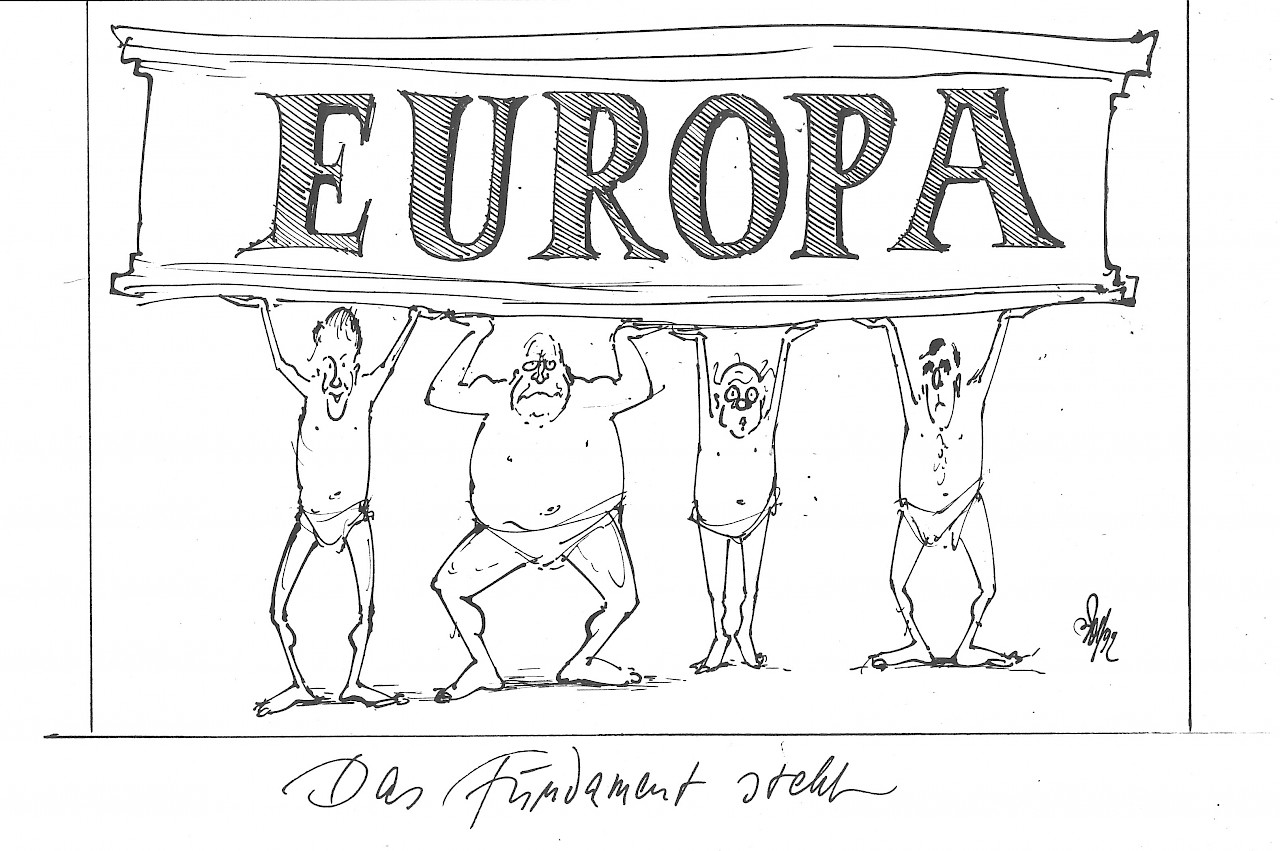 EUROPA
Das Fundament steht